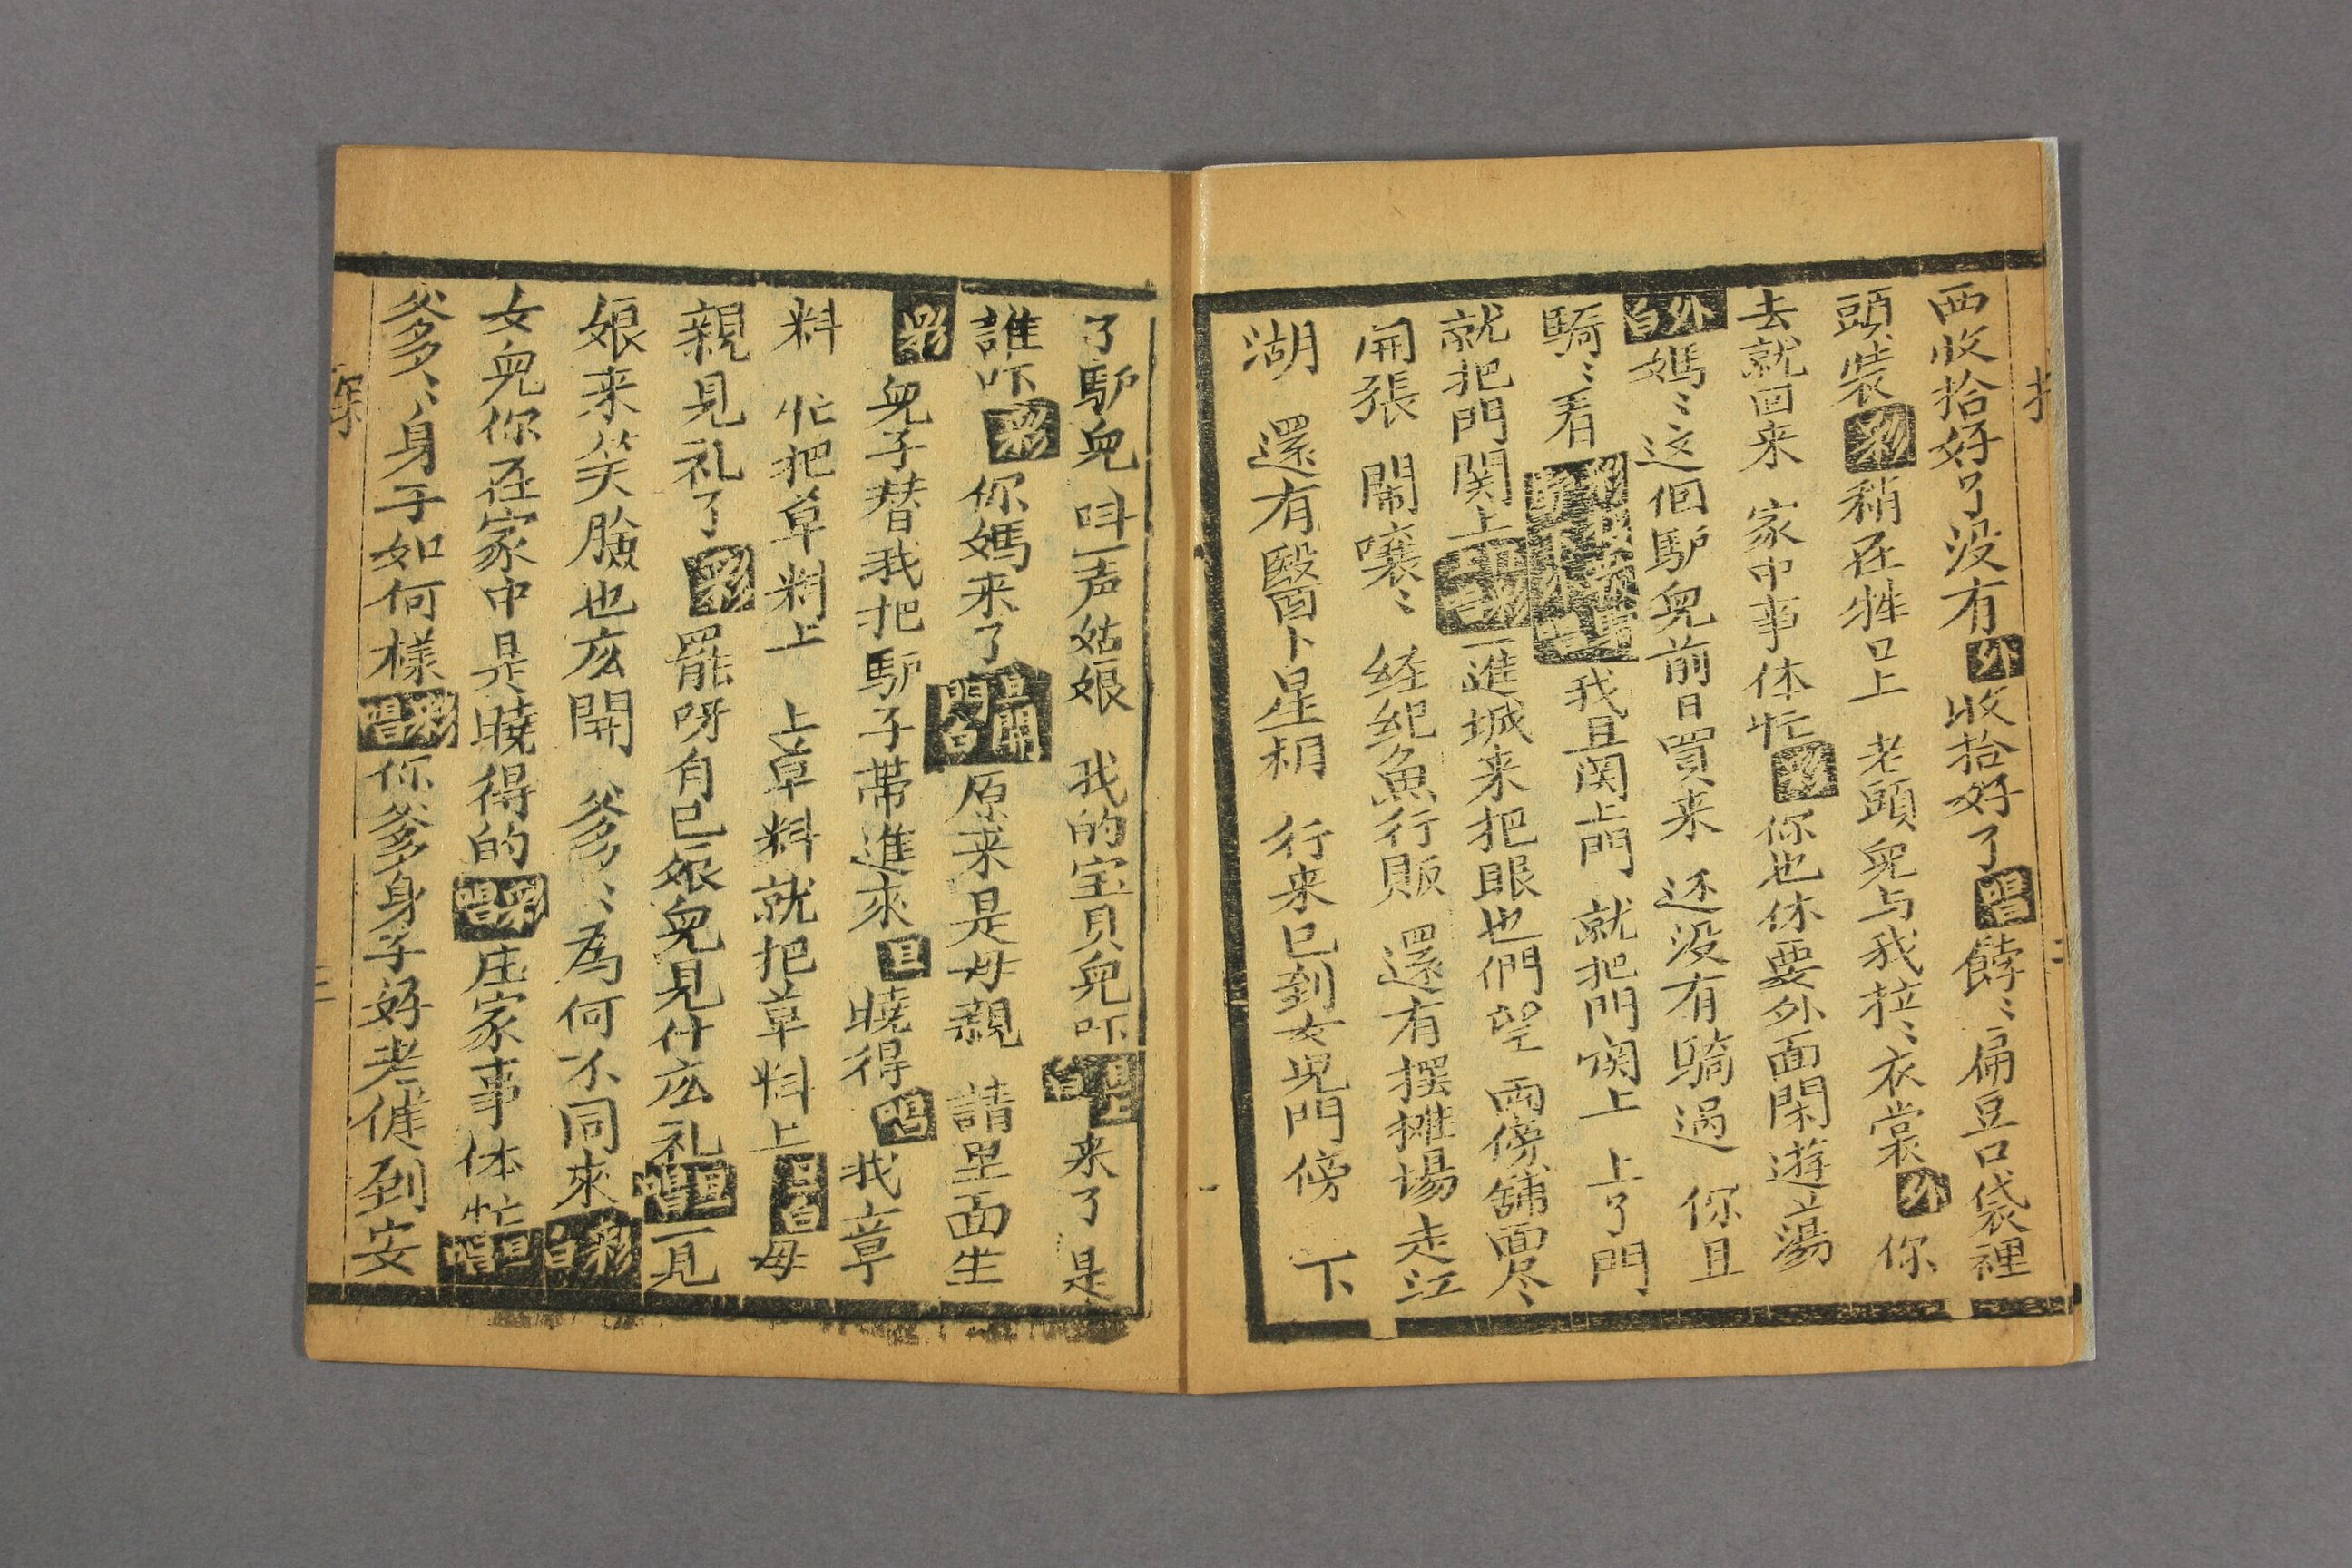 西收拾好了没有外收拾好了唱餑〻扁豆口袋裡
頭裝彩稍在牲口上 老頭兒与我拉〻衣裳外你
去就回来 家中事体忙彩你也休要外面閑遊蕩
外白媽〻这個馿兒前日買来 还没有騎過 你且
騎〻看 我且関上門 就把門関上 上了門
就把門関上 一進城来把眼也們望 両傍舖面尽
開張 閙嚷〻 経紀魚行販 還有摆攤場走江
湖 還有醫卜星相 行来已到女児門傍 下
了馿兒 叫一声姑娘 我的宝貝兒吓 旦上白来了 是
誰吓彩你媽来了旦開門白原来是母親 請里面坐
彩兒子替我把馿子帯進來旦曉得唱我章
料 忙把草料上 上草料就把草料上旦白母
親見礼了彩罷呀自己娘兒見什広礼旦唱一見
娘来笑臉也広開 爹〻為何不同來彩白
女兒你在家中是曉得的彩唱庄家事体忙旦唱
爹〻身子如何樣彩唱你爹身子好老健到安